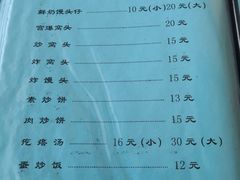 鲜奶馒头仔 10元(小)20元(大)
宫爆窝头 20元
炒窝头 15元
炸窝头 15元
炸馒头 15元
素炒饼 13元
肉炒饼 15元
疙瘩汤 16元(小) 30元(大)
蛋炒饭 12元